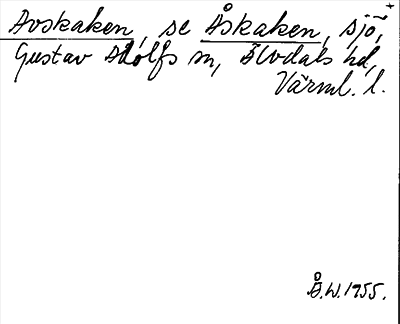 Avskaken, se Åskaken, sjö,+
Gustav Adolfs sn, Älvdals hd,
Värml. l.
Å.W. 1955.